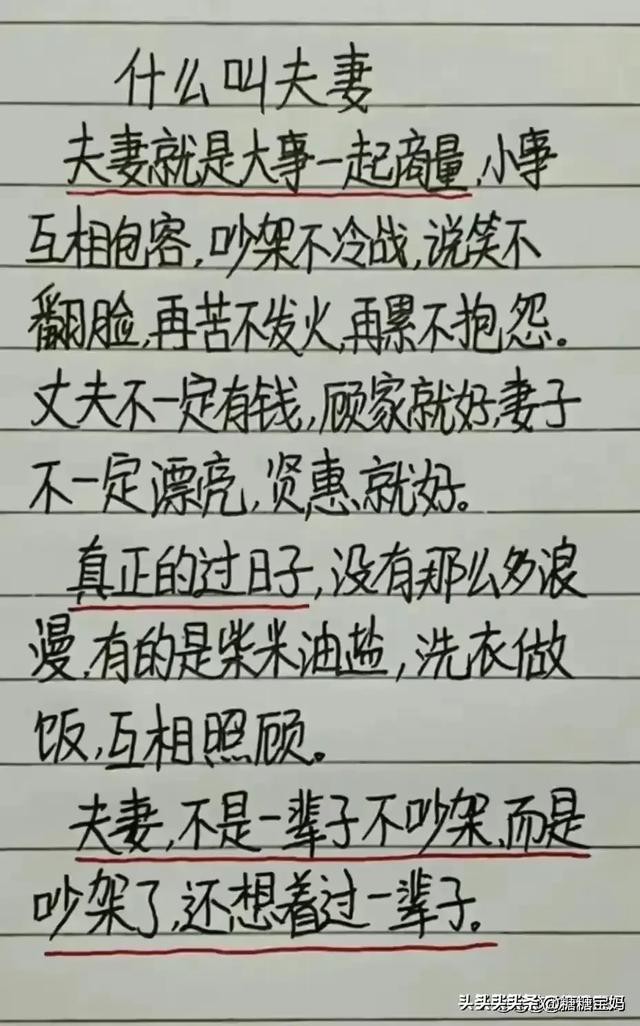 什么叫夫妻
夫妻就是大事一起商量,小事
互相包容,吵架不冷战,说笑不
翻脸,再苦不发火,再累不抱怨。
丈夫不一定有钱,顾家就好,妻子
不一定漂亮,贤惠就好。
真正的过日子,没有那么多浪
漫,有的是柴米油盐,洗衣做
饭,互相照顾。
夫妻,不是一辈子不吵架,而是
吵架了,还想着过一辈子。
头条@糖糖宝妈